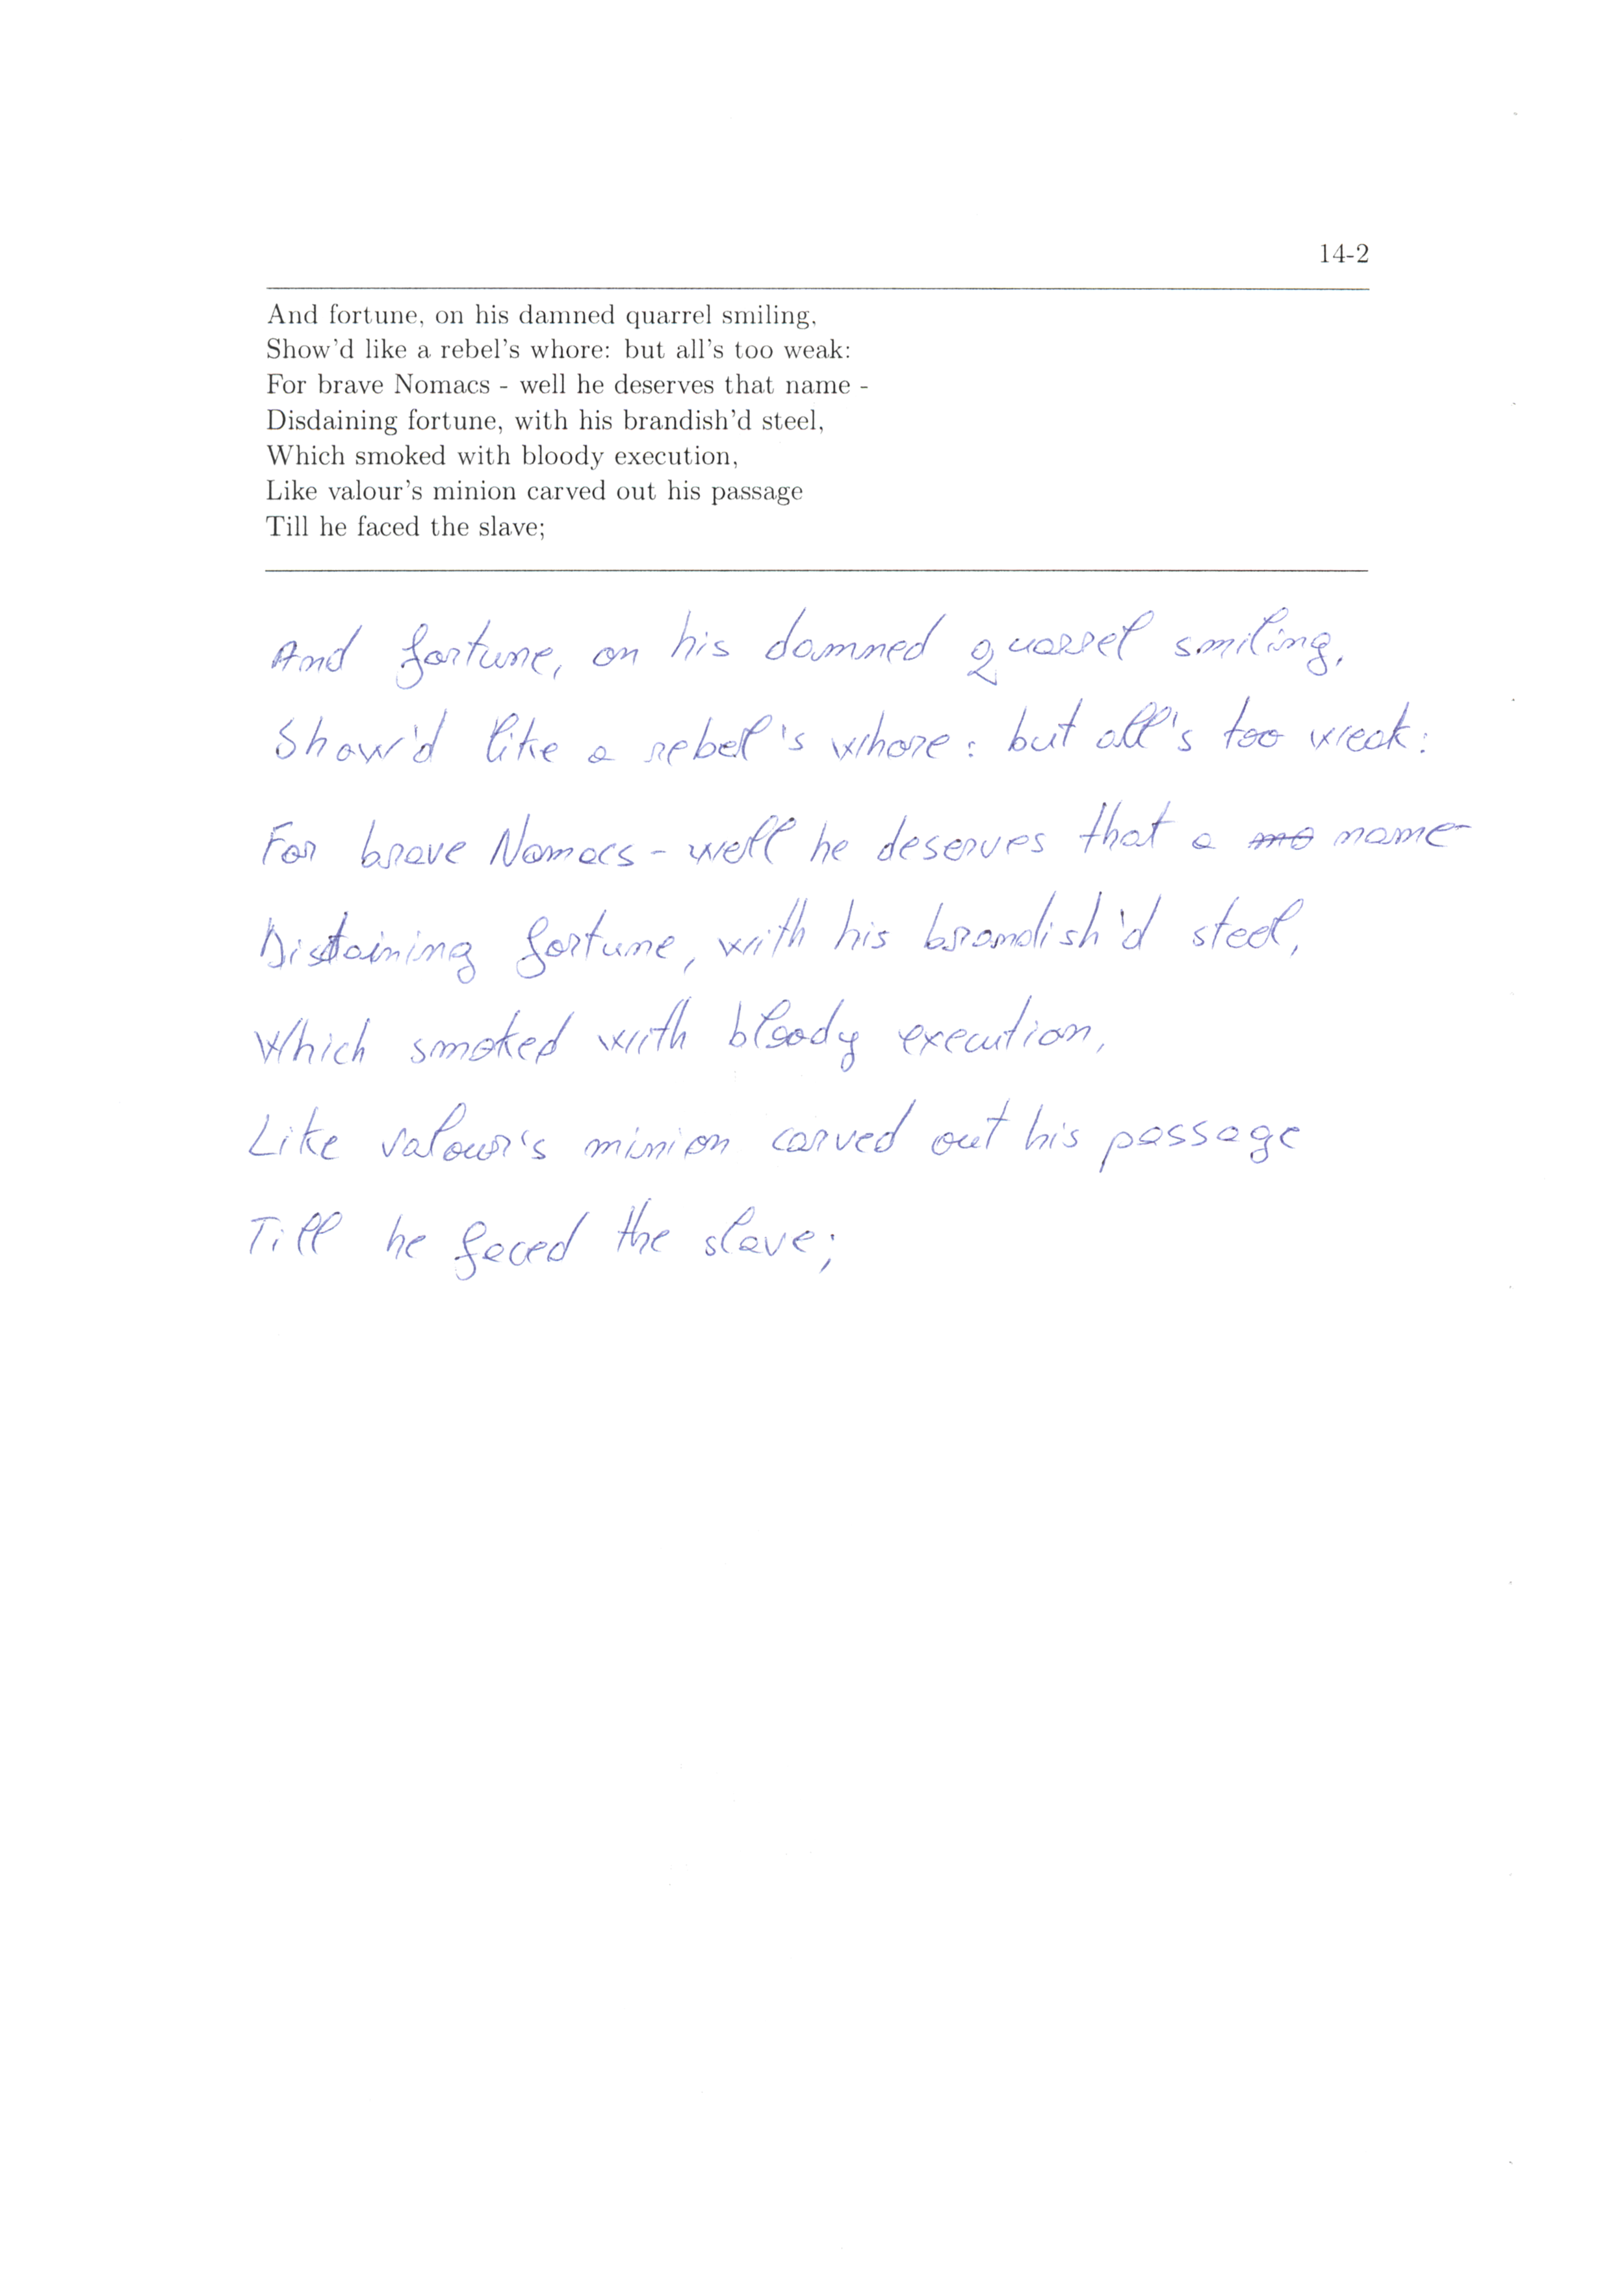 14-2
And fortune, on his damned quarrel smiling,
Show'd like a rebel's whore: but all's too weak:
For brave Nomacs - well he deserves that name -
Disdaining fortune, with his brandish'd steel,
Which smoked with bloody execution,
Like valour's minion carved out his passage
Till he faced the slave;
And fortune, on his damned quarrel smiling,
Show'd like a rebel's whore: but all's too weak:
For brave Nomacs - well he deserves that a name -
Disdaining fortune, with his brandish'd steel,
Which smoked with bloody execution,
Like valour's minion carved out his passage
Till he faced the slave;